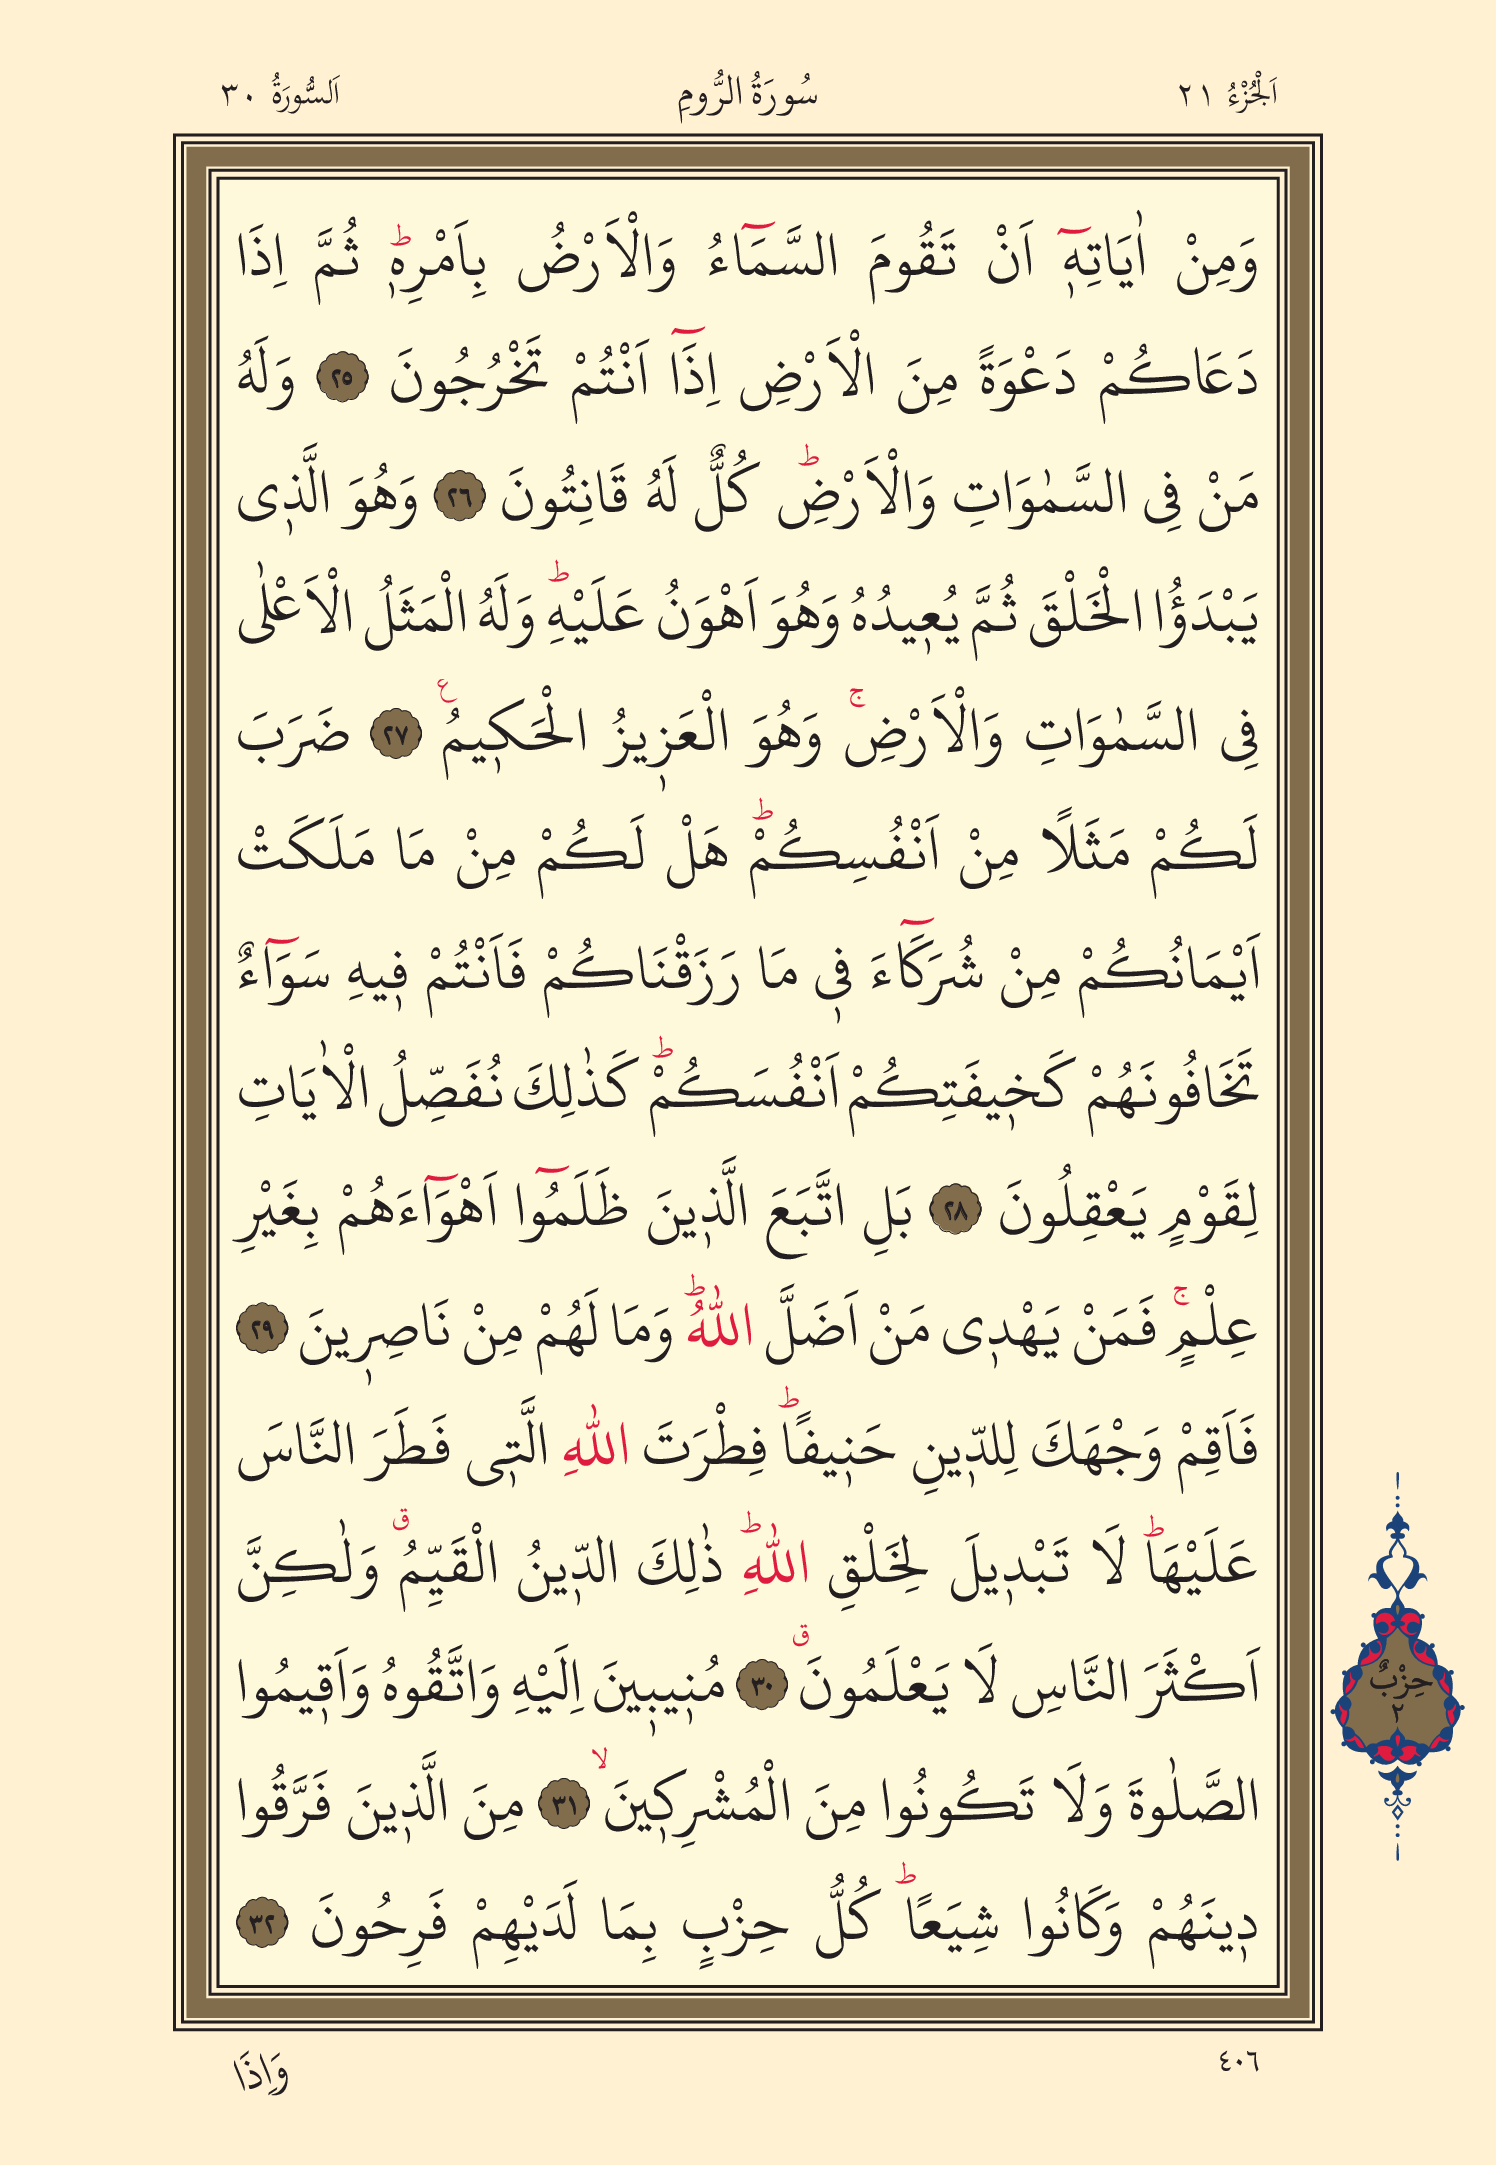 اَلْجُزْءُ ٢١ سُورَةُ الرُّومِ اَلسُّورَةُ ٣٠
وَمِنْ اٰيَاتِه۪ٓ اَنْ تَقُومَ السَّمَٓاءُ وَالْاَرْضُ بِاَمْرِه۪ۜ ثُمَّ اِذَا
دَعَاكُمْ دَعْوَةً مِنَ الْاَرْضِ اِذَٓا اَنْتُمْ تَخْرُجُونَ ﴿٢٥﴾ وَلَهُ
مَنْ فِى السَّمٰوَاتِ وَالْاَرْضِۜ كُلٌّ لَهُ قَانِتُونَ ﴿٢٦﴾ وَهُوَ الَّذ۪ى
يَبْدَؤُا الْخَلْقَ ثُمَّ يُع۪يدُهُ وَهُوَ اَهْوَنُ عَلَيْهِۜ وَلَهُ الْمَثَلُ الْاَعْلٰى
فِى السَّمٰوَاتِ وَالْاَرْضِۚ وَهُوَ الْعَز۪يزُ الْحَك۪يمُ۟ ﴿٢٧﴾ ضَرَبَ
لَكُمْ مَثَلًا مِنْ اَنْفُسِكُمْۜ هَلْ لَكُمْ مِنْ مَا مَلَكَتْ
اَيْمَانُكُمْ مِنْ شُرَكَٓاءَ ف۪ى مَا رَزَقْنَاكُمْ فَاَنْتُمْ ف۪يهِ سَوَٓاءٌ
تَخَافُونَهُمْ كَخ۪يفَتِكُمْ اَنْفُسَكُمْۜ كَذٰلِكَ نُفَصِّلُ الْاٰيَاتِ
لِقَوْمٍ يَعْقِلُونَ ﴿٢٨﴾ بَلِ اتَّبَعَ الَّذ۪ينَ ظَلَمُٓوا اَهْوَٓاءَهُمْ بِغَيْرِ
عِلْمٍۚ فَمَنْ يَهْد۪ى مَنْ اَضَلَّ اللّٰهُۜ وَمَا لَهُمْ مِنْ نَاصِر۪ينَ ﴿٢٩﴾
فَاَقِمْ وَجْهَكَ لِلدّ۪ينِ حَن۪يفًاۜ فِطْرَتَ اللّٰهِ الَّت۪ى فَطَرَ النَّاسَ
عَلَيْهَاۜ لَا تَبْد۪يلَ لِخَلْقِ اللّٰهِۜ ذٰلِكَ الدّ۪ينُ الْقَيِّمُۗ وَلٰكِنَّ
اَكْثَرَ النَّاسِ لَا يَعْلَمُونَۗ ﴿٣٠﴾ مُن۪يب۪ينَ اِلَيْهِ وَاتَّقُوهُ وَاَق۪يمُوا
الصَّلٰوةَ وَلَا تَكُونُوا مِنَ الْمُشْرِك۪ينَۙ ﴿٣١﴾ مِنَ الَّذ۪ينَ فَرَّقُوا
د۪ينَهُمْ وَكَانُوا شِيَعًاۜ كُلُّ حِزْبٍ بِمَا لَدَيْهِمْ فَرِحُونَ ﴿٣٢﴾
حِزْبٌ
٢
٤٠٦ وَاِذَا